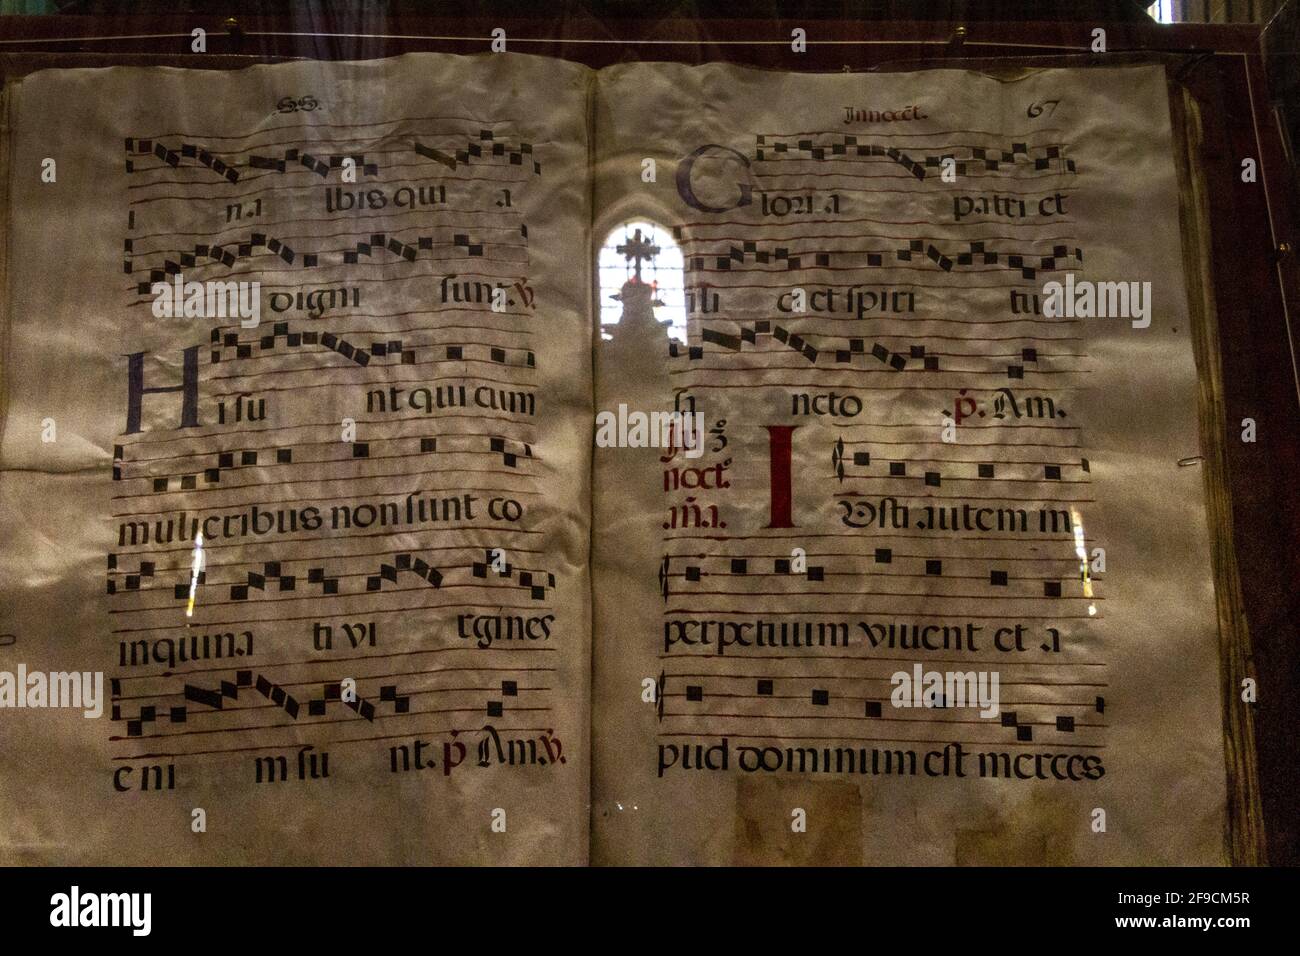 S.S.
in albis qui a
digni sunt. ℣.
Hi su nt qui cum
mulieribus non sunt co
inquina ti vi rgines
e ni m su nt. p̃ Am. ℣.
Innocẽt. 67
Gloria patri et
fili o et spiri tu
sa ncto . p̃. Am.
Iusti autem in
noct.º
.añ.a.
perpetuum vivent et a
pud dominum est merces
alamy
Image ID: 2F9CM5R
www.alamy.com